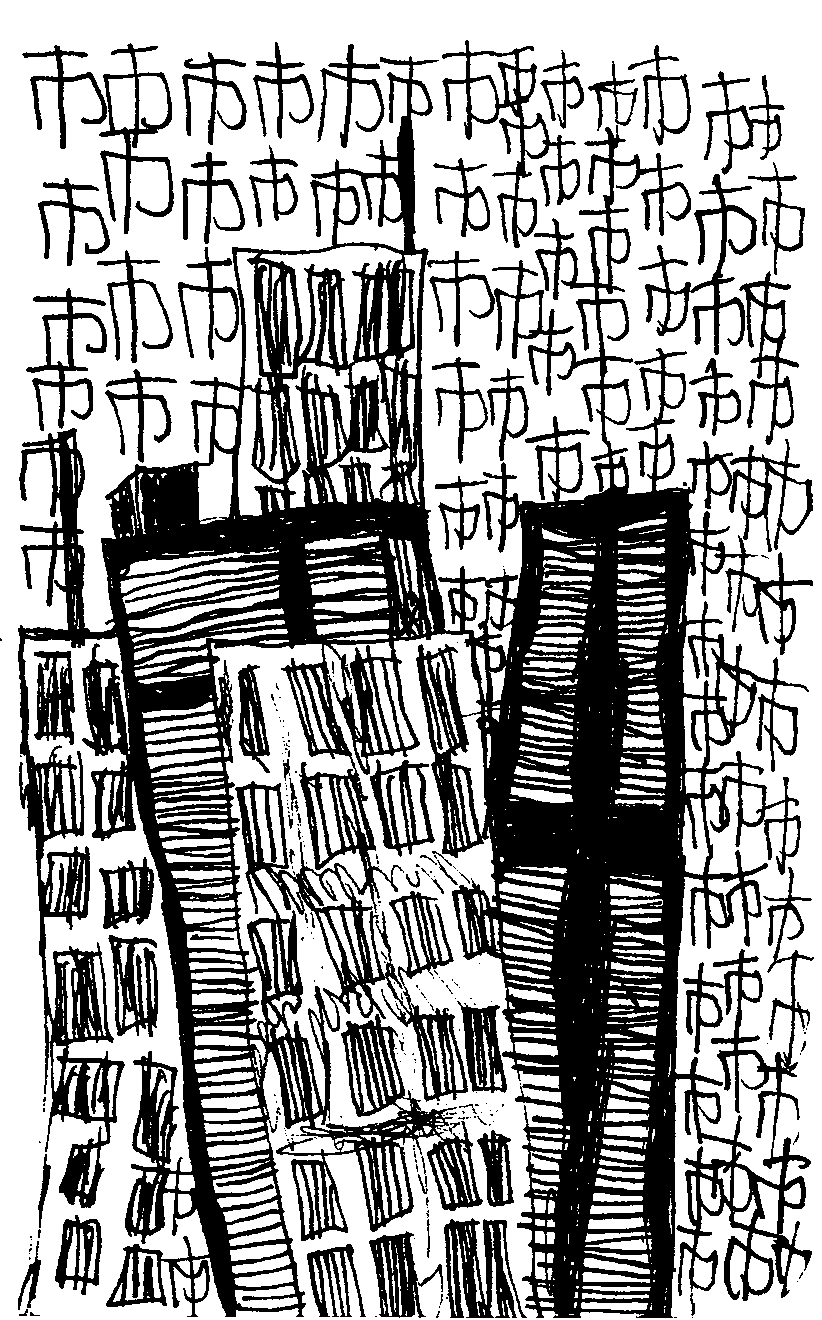 市市市市市市市市市市市市市
市市市市市市市市市市市市市
市市市市市市市市市市
市市市市市市市市市市
市市市市市市市市市
市市市市市市
市市市市
市市市
市市市
市市市
市市市
市市市
市市市市
市市市市